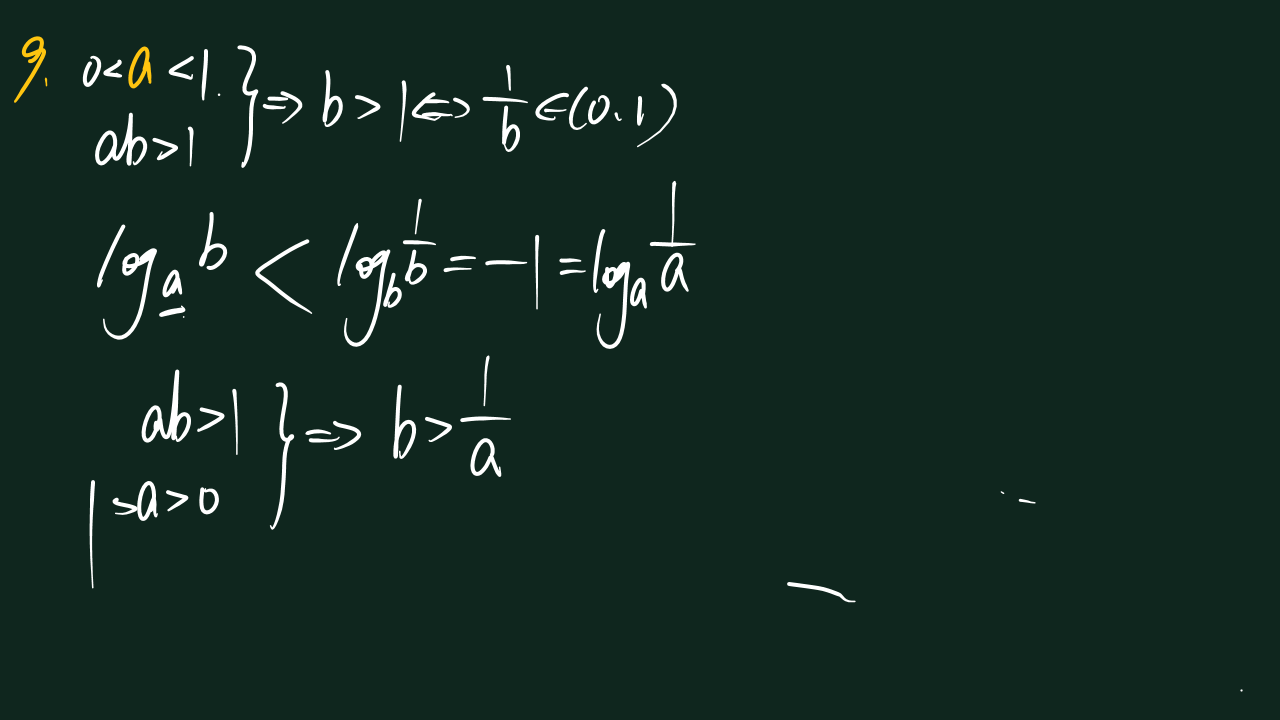 9. 0<a<1.
ab>1 } ⇒ b>1 ⇔ 1/b ∈(0.1)
log_a b < log_b 1/b = -1 = log_a 1/a
ab>1
1>a>0 } ⇒ b > 1/a